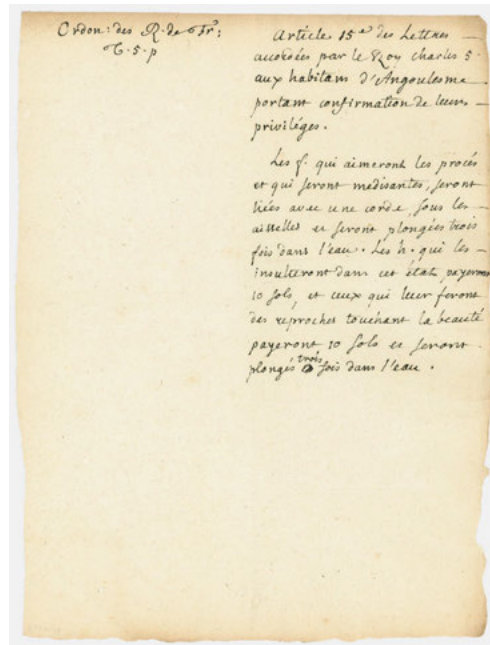 Ordon: des R. de Fr:
T. 5. p
Article 15e des Lettres
accordées par le Roy Charles 5.
aux habitans d'Angoulesme
portant confirmation de leurs
priviléges.
Les f. qui aimeront les procés
et qui seront medisantes, seront
liées avec une corde, sous les
aisselles et seront plongées trois
fois dans l'eau. Les h. qui les
insulteront dans cet état payeront
10 sols, et ceux qui leur feront
des reproches touchant la beauté
payeront 10 sols et seront
plongés trois fois dans l'eau.